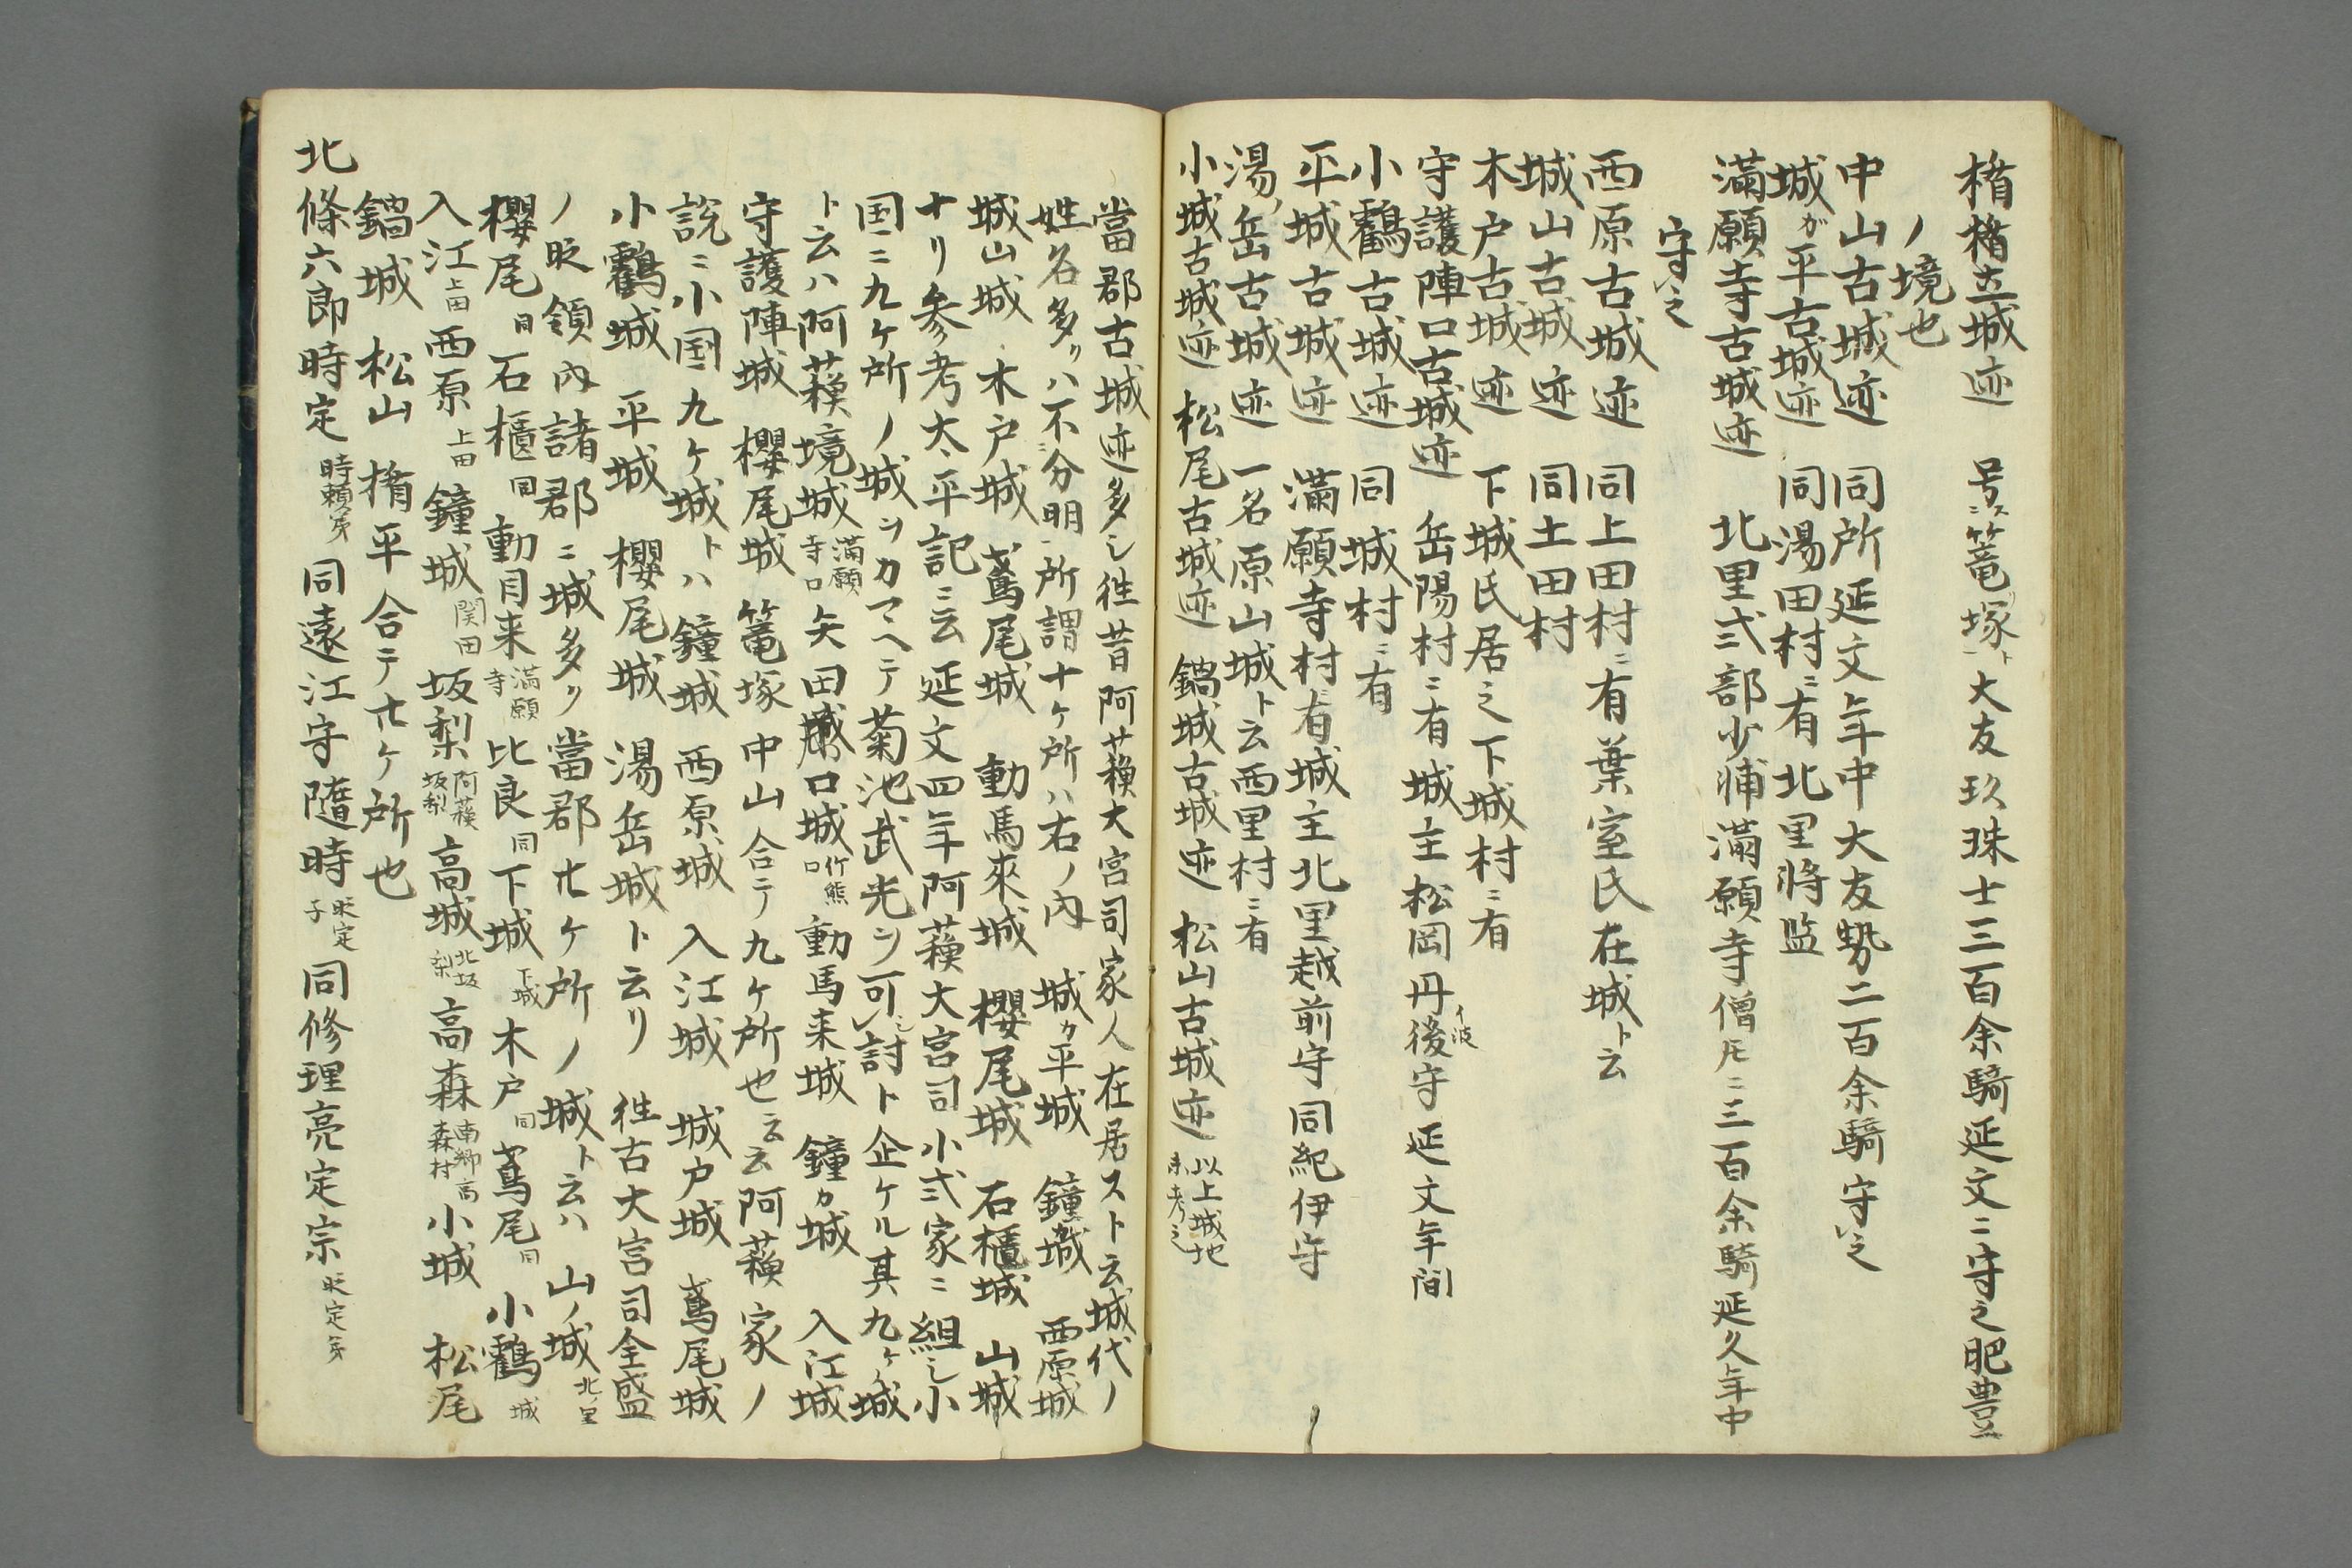 楮楮立城迹 号ス篭塚ト 大友玖珠士三百余騎延文ニ守之肥豊
ノ境也
中山古城迹 同所延文年中大友勢二百余騎守之
城ガ平古城迹 同湯田村ニ有北里将监
満願寺古城迹 北里弐部少浦満願寺僧𪜈ニ三百余騎延久年中
守之
西原古城迹 同上田村ニ有葉室氏在城ト云
城山古城迹 同土田村
木戸古城迹 下城氏居之下城村ニ有
守護陣口古城迹 岳陽村ニ有城主松岡丹後守延文年間
小鸖古城迹 同城村ニ有
平城古城迹 満願寺村ニ有城主北里越前守同紀伊守
湯ノ岳古城迹 一名原山城ト云西里村ニ有
小城古城迹 松尾古城迹 鍋城古城迹 松山古城迹 以上城地未考之
當郡古城迹多シ往昔阿蘇大宮司家人在居スト云城代ノ
姓名多クハ不分明所謂十ケ所ハ右ノ内 城カ平城 鐘城 西原城
城山城 木戸城 鳶尾城 動馬來城 櫻尾城 石櫃城 山城
ナリ参考太平記ニ云延文四年阿蘇大宮司小弐家ニ組シ小
国ニ九ケ所ノ城ヲカマヘテ菊池武光ヲ可討ト企ケル其九ケ城
ト云ハ阿蘇境城 満願寺口 矢田城口城 竹熊口 動馬来城 鐘カ城 入江城
守護陣城 櫻尾城 篭塚 中山合テ九ケ所也云云阿蘇家ノ
説ニ小国九ケ城トハ鐘城 西原城 入江城 城戸城 鳶尾城
小鸖城 平城 櫻尾城 湯岳城ト云リ 往古大宮司全盛
ノ時領内諸郡ニ城多ク當郡廿ケ所ノ城ト云ハ 山ノ城 北里
櫻尾 同 石櫃 同 動目来 満願寺 比良 同 下城 下城 木戸 同 鳶尾 同 小鸖 城
入江 上田 西原 上田 鐘城 関田 坂梨 阿蘇坂梨 高城 北坂梨 高森 南郷高森村 小城 松尾
鍋城 松山 楮平合テ廿ケ所也
北條六郎時定 時頼弟 同遠江守隨時 時定子 同修理亮定宗 時定弟